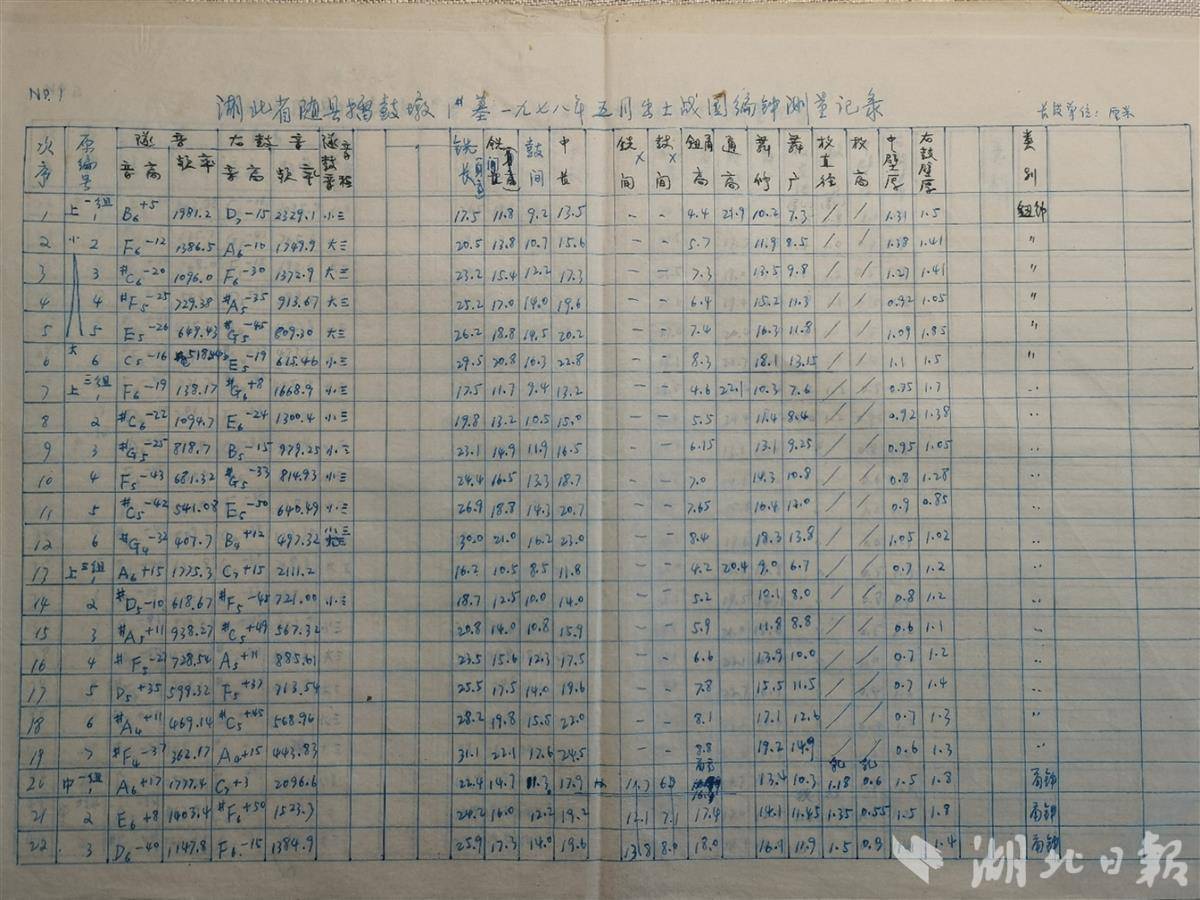 NO.1
湖北省随县擂鼓墩1#墓一九七八年五月出土战国编钟测量记录
长度单位：厘米
次序 原编号 隧音 音高 频率 右鼓音 音高 频率 隧鼓音程 铣长 铣间 鼓间 中长 铣间 鼓间 甬高 通高 舞修 舞广 枚直径 枚高 中壁厚 右鼓壁厚 类别
1 上一组1 B6+5 1981.2 D7-15 2329.1 小三 17.5 11.8 9.2 13.5 - - 4.4 21.9 10.2 7.3 / / 1.31 1.5 钮钟
2 小 2 F6-12 1386.5 A6-10 1749.9 大三 20.5 13.8 10.7 15.6 - - 5.7 11.9 8.5 / / 1.38 1.41 〃
3 3 #C6-20 1096.0 F6-30 1372.9 大三 23.2 15.4 12.2 17.3 - - 7.3 13.5 9.8 / / 1.27 1.41 〃
4 4 #F5-25 729.38 #A5-35 913.67 大三 25.2 17.0 14.0 19.6 - - 6.4 15.2 11.3 / / 0.92 1.05 〃
5 5 E5-26 649.43 #G5-45 809.30 大三 26.2 18.8 14.5 20.2 - - 7.4 16.3 11.8 / / 1.09 1.85 〃
6 大 6 C5-16 E5-19 615.46 小三 29.5 20.8 16.3 22.8 - - 8.3 18.1 13.15 / / 1.1 1.5 〃
7 上二组1 F6-19 138.17 #G6+8 1668.9 小三 17.5 11.7 9.4 13.2 - - 4.6 22.1 10.3 7.6 / / 0.75 1.7 〃
8 2 #C6-22 1094.7 E6-24 1300.4 小三 19.8 13.2 10.5 15.0 - - 5.5 11.4 8.4 / / 0.92 1.38 〃
9 3 #G5-25 818.7 B5-15 979.25 小三 23.1 14.9 11.9 16.5 - - 6.15 13.1 9.25 / / 0.95 1.05 〃
10 4 F5-43 681.32 #G5-33 814.93 小三 24.4 16.5 13.3 18.7 - - 7.0 14.3 10.8 / / 0.8 1.28 〃
11 5 #C5-42 541.08 E5-50 640.49 小三 26.9 18.8 14.3 20.7 - - 7.65 16.4 12.0 / / 0.9 0.85 〃
12 6 #G4-32 407.7 B4+12 497.32 小三 30.0 21.0 16.2 23.0 - - 8.4 18.3 13.8 / / 1.05 1.02 〃
13 上三组1 A6+15 1775.3 C7+15 2111.2 16.2 10.5 8.5 11.8 - - 4.2 20.4 9.0 6.7 / / 0.7 1.2 〃
14 2 #D5-10 618.67 #F5-45 721.00 小三 18.7 12.5 10.0 14.0 - - 5.2 10.1 8.0 / / 0.8 1.2 〃
15 3 #A5+11 938.27 #C5+49 567.32 20.8 14.0 10.8 15.9 - - 5.9 11.8 8.8 / / 0.6 1.1 〃
16 4 #F5-27 728.54 A5+11 885.61 23.5 15.6 12.3 17.5 - - 6.6 13.9 10.0 / / 0.7 1.2 〃
17 5 D5+35 599.32 F5+37 713.54 25.5 17.5 14.0 19.6 - - 7.8 15.5 11.5 / / 0.7 1.4 〃
18 6 #A4+11 469.14 #C5+45 568.96 28.2 19.8 15.5 22.0 - - 8.1 17.1 12.6 / / 0.7 1.3 〃
19 7 #F4-37 362.17 A4+15 443.83 31.1 22.1 17.6 24.5 - - 8.8 19.2 14.9 / / 0.6 1.3 〃
20 中一组1 A6+17 1777.4 C7+3 2096.6 22.4 14.7 11.3 17.9 11.7 13.4 10.3 1.18 0.6 1.5 1.8 甬钟
21 2 E6+8 1403.4 #F6+50 1523.3 24.2 16.0 12.2 19.2 12.1 7.1 17.4 14.1 11.45 1.35 0.55 1.5 1.8 甬钟
22 3 D6-40 1147.8 F6-15 1384.9 25.9 17.3 14.0 19.6 13.8 8.0 18.0 16.1 11.9 1.5 0.9 1.4 甬钟
湖北日报